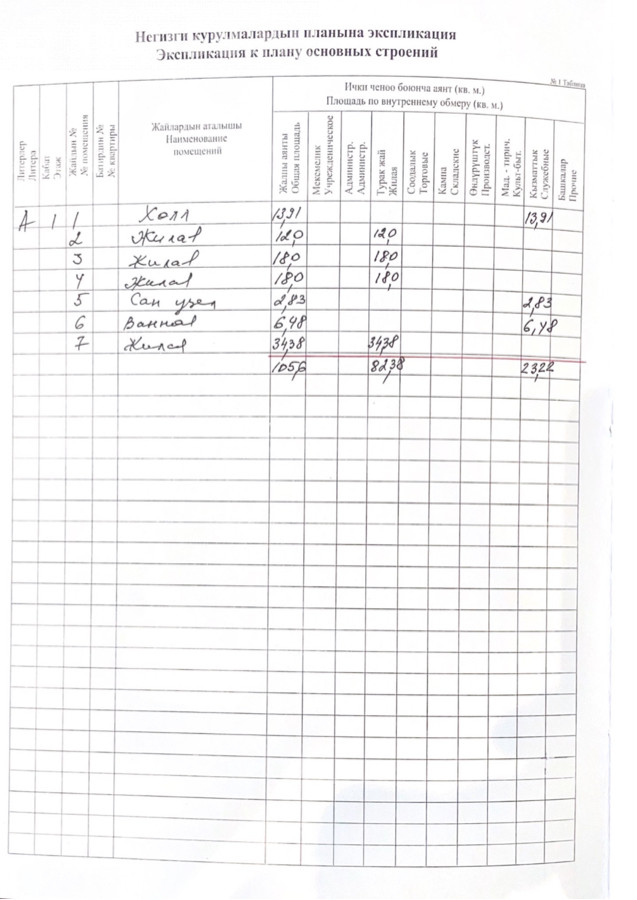 Негизги курулмалардын планына экспликация
Экспликация к плану основных строений
№ 1 Таблица
Ички ченөө боюнча аянт (кв. м.)
Площадь по внутреннему обмеру (кв. м.)
Литерлер
Литера
Кабат
Этаж
Жайдын №
№ помещения
Батирдин №
№ квартиры
Жайлардын аталышы
Наименование
помещений
Жалпы аянты
Общая площадь
Мекемелик
Учрежденическое
Администр.
Администр.
Турак жай
Жилая
Соодалык
Торговые
Кампа
Складские
Өндүрүштүк
Производст.
Мад. - тирич.
Культ-быт.
Кызматтык
Служебные
Башкалар
Прочие
А 1 1 Холл 13,91 13,91
2 Жилая 12,0 12,0
3 Жилая 18,0 18,0
4 Жилая 18,0 18,0
5 Сан узел 2,83 2,83
6 Ванная 6,48 6,48
7 Жилая 34,38 34,38
105,6 82,38 23,22